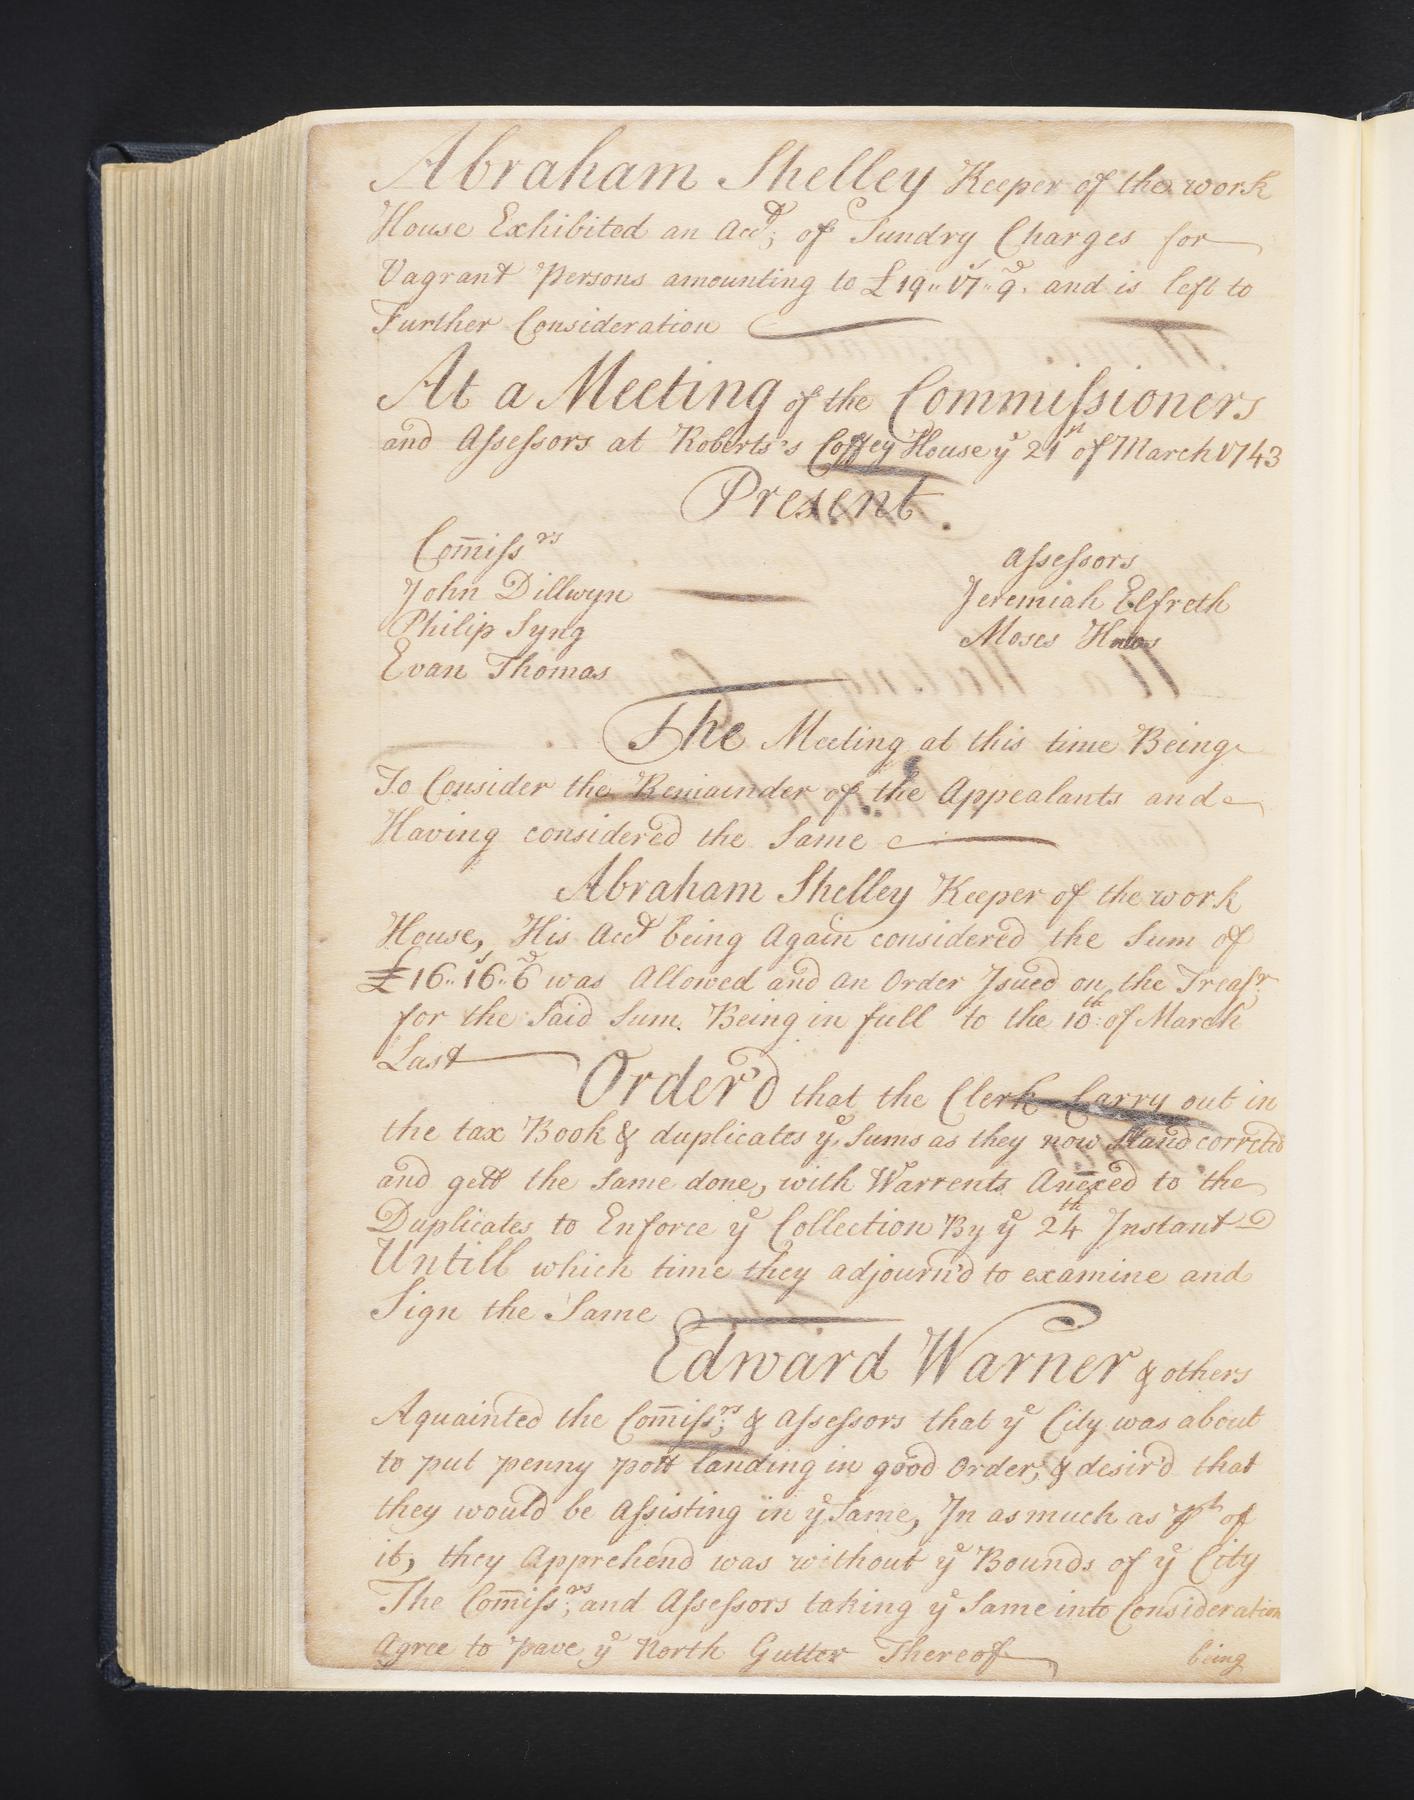 Abraham Shelley Keeper of the work
House Exhibited an Accᵗ; of Sundry Charges for
Vagrant Persons amounting to £19„ 17ˢ„ 9ᵈ. and is left to
Further Consideration
At a Meeting of the Commiſsioners
and Aſseſsors at Roberts's Coffey House yᵉ 21ˢᵗ of March 1743
Present
Com̄iſsʳˢ
Aſseſsors
John Dillwyn
Jeremiah Elfreth
Philip Syng
Moses
Evan Thomas
The Meeting at this time Being
To Consider the Remainder of the Appealants and
Having considered the Same
Abraham Shelley Keeper of the work
House, His Accᵗ being Again considered the Sum of
£16„ 16ˢ„ 6ᵈ was Allowed and an Order Isued on the Treasʳ
for the Said Sum. Being in full to the 10ᵗʰ: of March
Last
Order'd that the Clerk Carry out in
the tax Book & duplicates yᵉ Sums as they now Stand corrected
and gett the Same done, with Warrents Anexed to the
Duplicates to Enforce yᵉ Collection By yᵉ 24ᵗʰ Instant
Untill which time they adjourn'd to examine and
Sign the Same
Edward Warner & others
Aquainted the Com̄iſsʳˢ; & Aſseſsors that yᵉ City was about
to put penny pott landing in good Order, & desir'd that
they would be Aſsisting in yᵉ Same, In as much as pᵗ of
it, they Apprehend was without yᵉ Bounds of yᵉ City
The Com̄iſsʳˢ; and Aſseſsors taking yᵉ Same into Consideration
Agree to pave yᵉ North Gutter Thereof
being